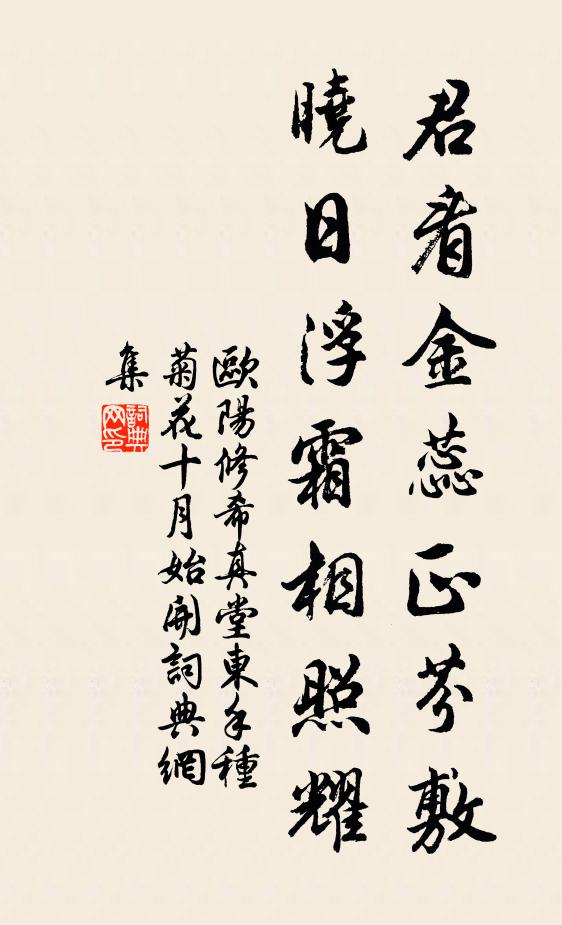 君看金蕊正芬敷
曉日浮霜相照耀
歐陽修希真堂東手種
菊花十月始開詞典網
集
詞典
网印